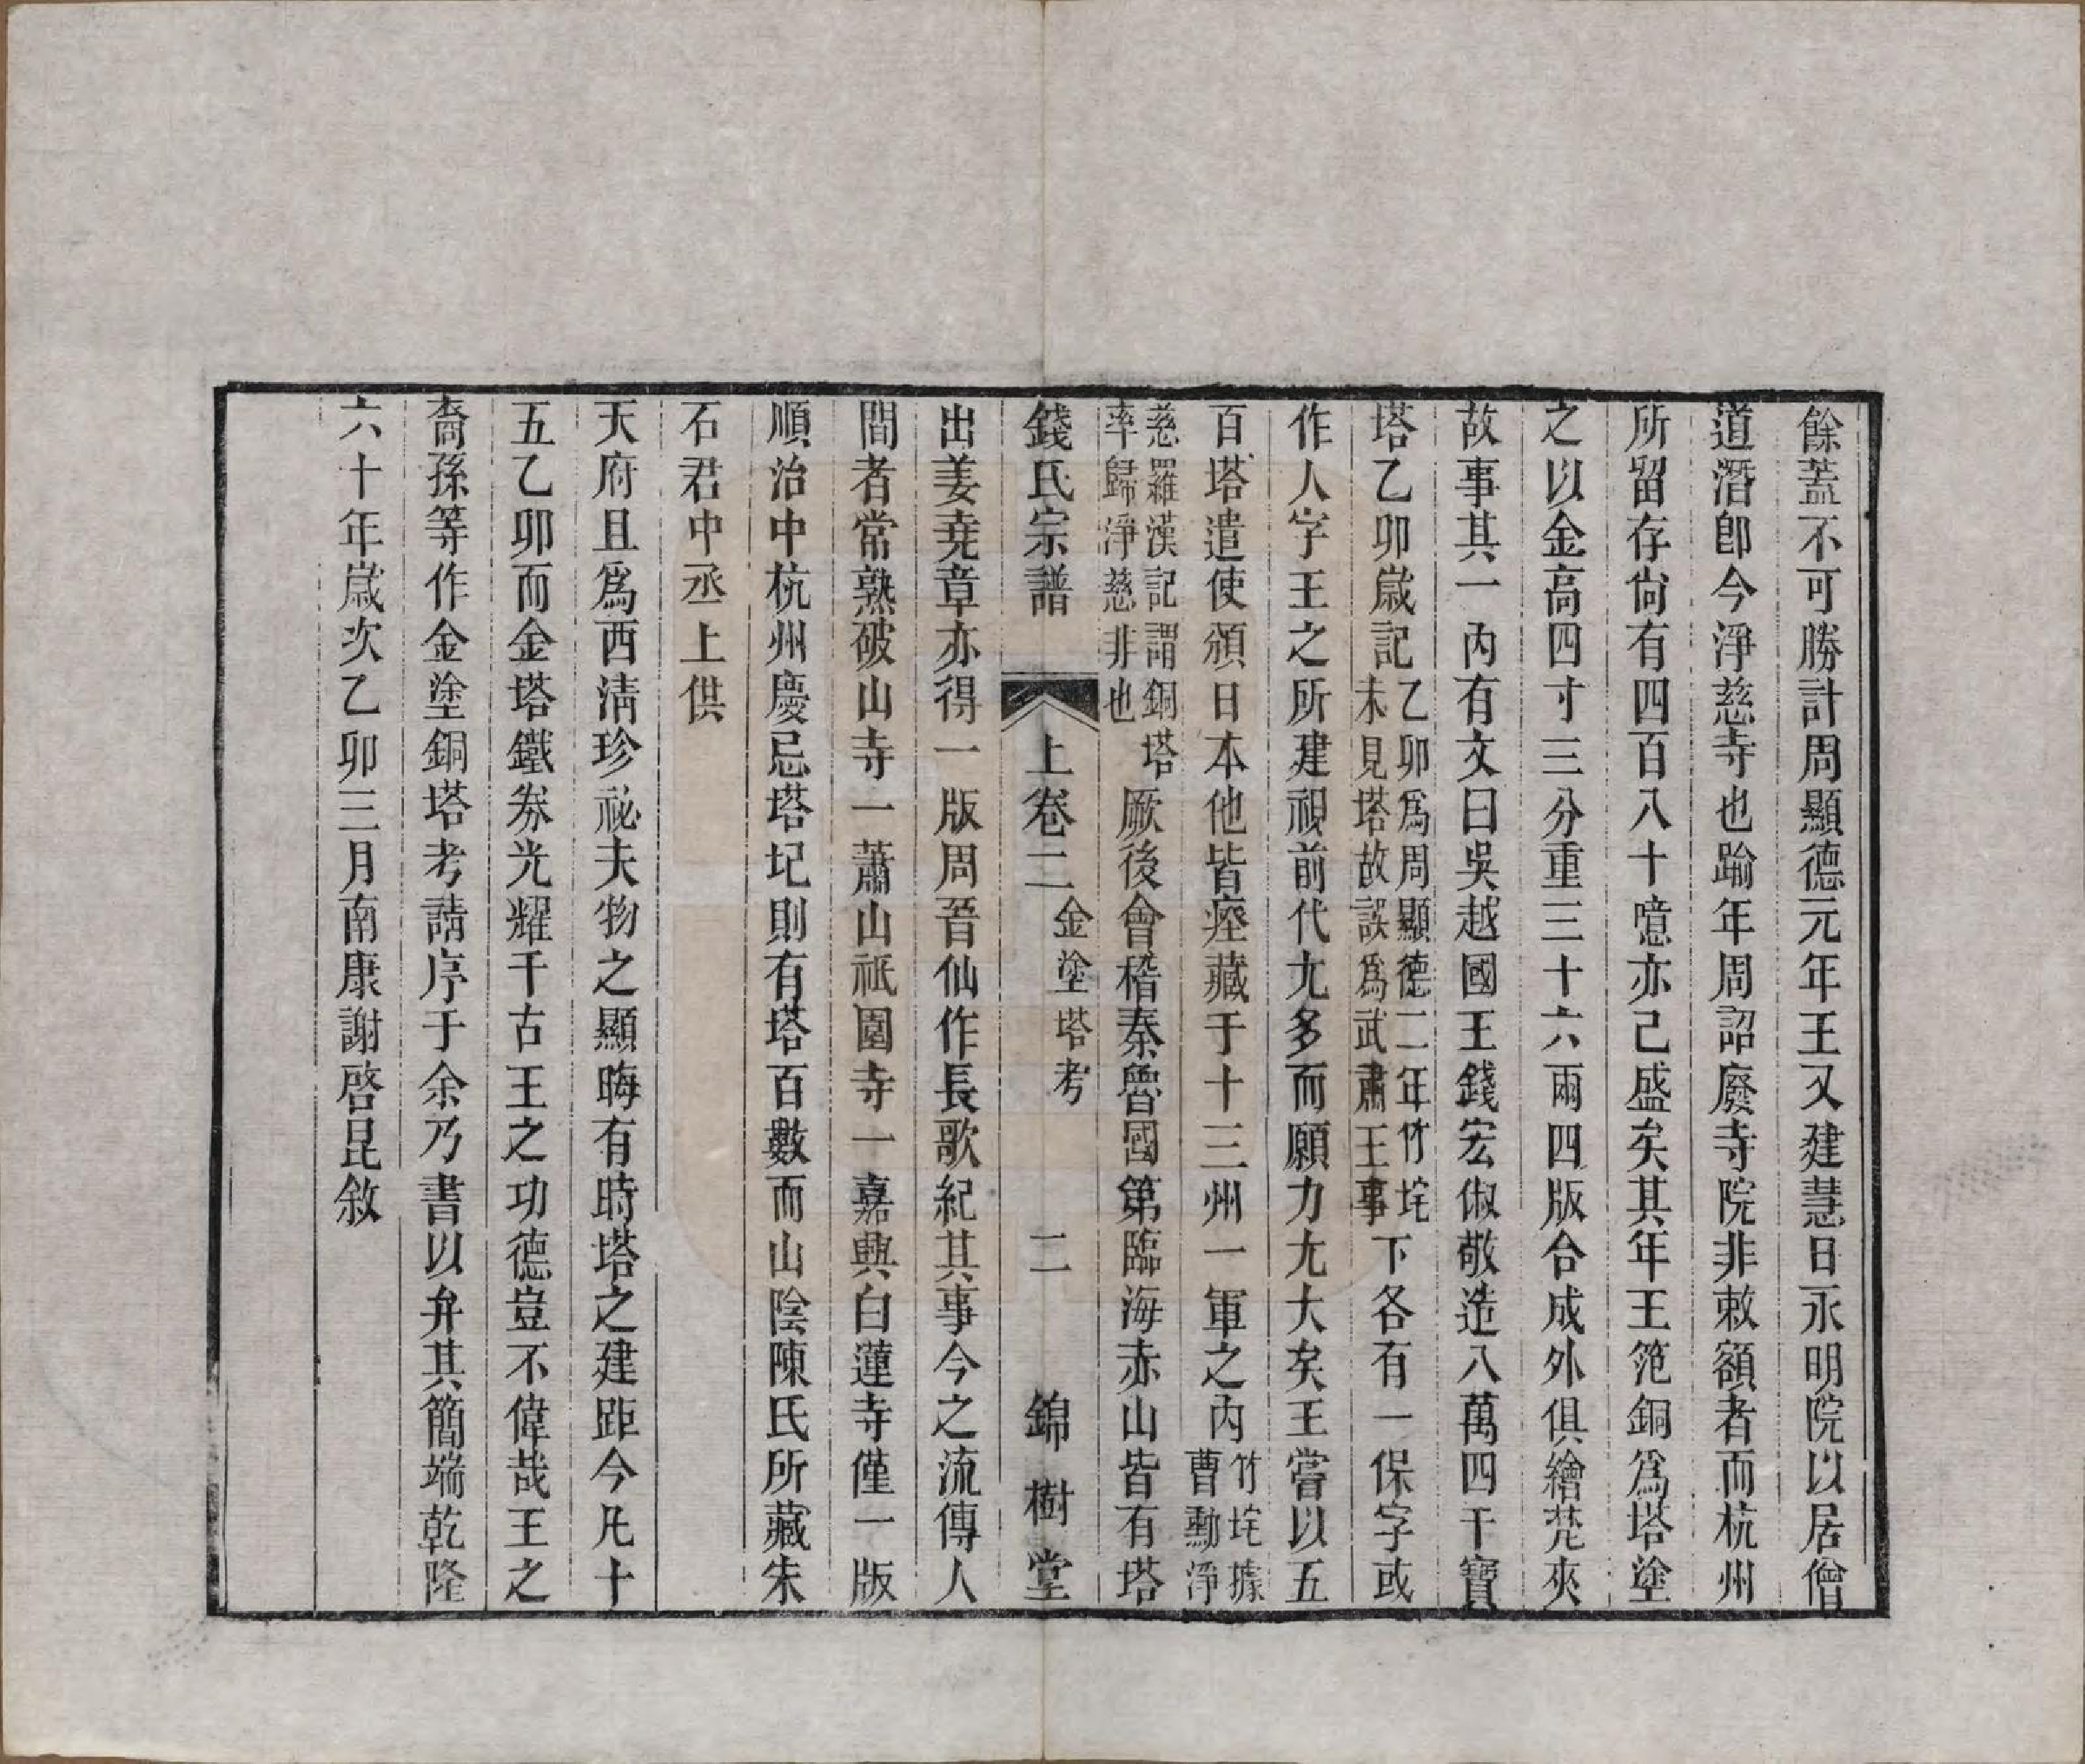 餘蓋不可勝計周顯德元年王又建慧日永明院以居僧
道潛卽今淨慈寺也踰年周詔廢寺院非敕額者而杭州
所留存尙有四百八十噫亦已盛矣其年王笵銅爲塔塗
之以金高四寸三分重三十六兩四版合成外俱繪梵夾
故事其一內有文曰吳越國王錢宏俶敬造八萬四千寶
塔乙卯歲記乙卯爲周顯德二年竹垞未見塔故誤爲武肅王事下各有一保字或
作人字王之所建視前代尤多而願力尤大矣王嘗以五
百塔遣使頒日本他皆瘞藏于十三州一軍之內竹垞據曹勳淨
慈羅漢記謂銅塔率歸淨慈非也厥後會稽秦魯國第臨海赤山皆有塔
錢氏宗譜 上卷二 金塗塔考 二 錦樹堂
出姜堯章亦得一版周晉仙作長歌紀其事今之流傳人
間者常熟破山寺一蕭山祇園寺一嘉興白蓮寺僅一版
順治中杭州慶忌塔圮則有塔百數而山陰陳氏所藏朱
石君中丞上供
天府且爲西淸珍祕夫物之顯晦有時塔之建距今凡十
五乙卯而金塔鐵券光耀千古王之功德豈不偉哉王之
裔孫等作金塗銅塔考請序于余乃書以弁其簡端乾隆
六十年歲次乙卯三月南康謝啓昆敘